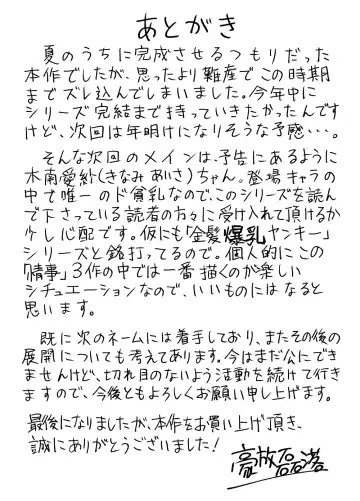 あとがき
夏のうちに完成させるつもりだった
本作でしたが、思ったより難産でこの時期
までズレ込んでしまいました。今年中に
シリーズ完結まで持っていきたかったんです
けど、次回は年明けになりそうな予感・・・。
そんな次回のメインは、予告にあるように
木南愛紗(きなみ あいさ)ちゃん。登場キャラの
中で唯一のド貧乳なので、このシリーズを読ん
で下さっている読者の方々に受け入れて頂けるか
少し心配です。仮にも「金髪爆乳ヤンキー」
シリーズと銘打ってるので。個人的にこの
「情事」3作の中では一番描くのが楽しい
シチュエーションなので、いいものにはなると
思います。
既に次のネームには着手しており、またその後の
展開についても考えてあります。今はまだ公にでき
ませんけど、切れ目のないよう活動を続けて行き
ますので、今後ともよろしくお願い申し上げます。
最後になりましたが、本作をお買い上げ頂き、
誠にありがとうございました!
豪放磊落